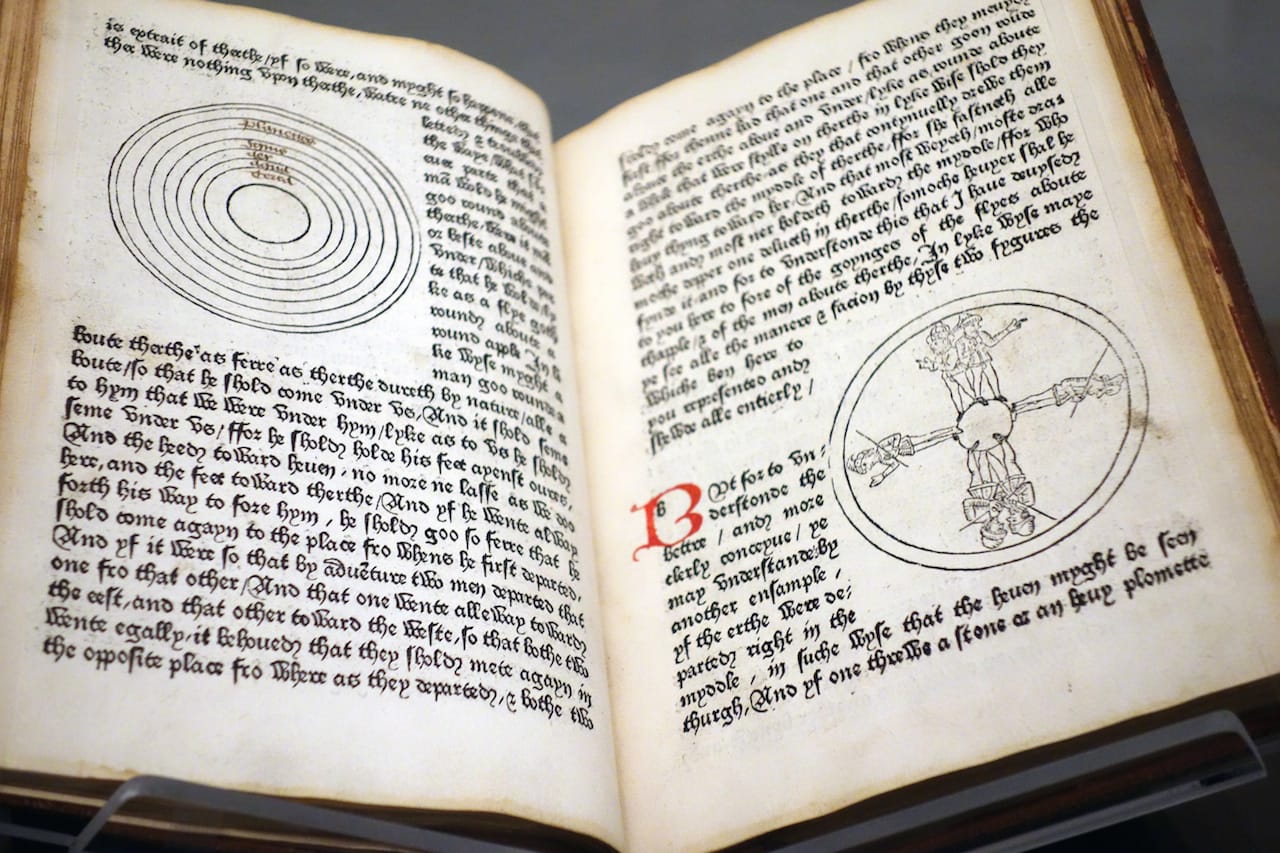 is extrait of therthe/yf so were, and myght so happene, that
ther were nothing vpon therthe, watre ne other thinge that
letted & 
the waye/What
eue parte that
mā wold he myght
goo round aboute
therthe, were it man
or beste aboue and
vnder/whiche par
te that he wold/ly
ke as a flye goth
round aboute a
round apple. In ly
ke wyse myght a
man goo rounde a
planetes
boute therthe as ferre as therthe dureth by nature/alle a
boute/so that he shold come vnder vs/And it shold seme
to hym that we were vnder hym/lyke as to vs he shold
seme vnder vs/ffor he shold holde his feet ayenst oures,
And the heed toward heuen, no more ne lasse as we doo
here, and the feet toward therthe/And yf he wente alway
forth his way to fore hym, he shold goo so ferre that he
shold come agayn to the place fro whens he first departed,
And yf it were so that by aduēture two men departed that
one fro that other/And that one wente alleway toward
the eest, and that other toward the weste, so that bothe two
wente egally, it behoued that they shold mete agayn in
the opposite place fro where as they departed, & bothe two
shold come agayn to the place/fro whens they meuyd
first ffor thenne had that one and that other goon rounde
aboute the erthe aboue and vnder/lyke as rounde aboute
a whele that were stylle on therthe in lyke wise shold they
goo aboute therthe, as they that contynuelly drewe them
right toward the myddle of therthe, ffor she fastneth alle
heuy thyng toward her, And that most weyeth/moste draw
eth and most ner holdeth toward the myddle/ffor who
moche depper one delueth in therthe/somoche heuyer shal he
fynde it, and for to vnderstonde this that I haue deuysed
to you here to fore of the goynges of the flyes aboute
thapple/& of the men aboute therthe, In lyke wyse maye
ye see alle the manere & facion by thyse two fygures the
whiche ben here to
you represented and
shewde alle entierly/
b
BVt for to vn,
derstonde the
bettre/and more
clerly conceyue/ye
may vnderstande by
another ensample,
yf the erthe were de:
parted right in the
myddle, in suche wyse that the heuen myght be seen
thurgh, And yf one threwe a stone or an heuy plomette